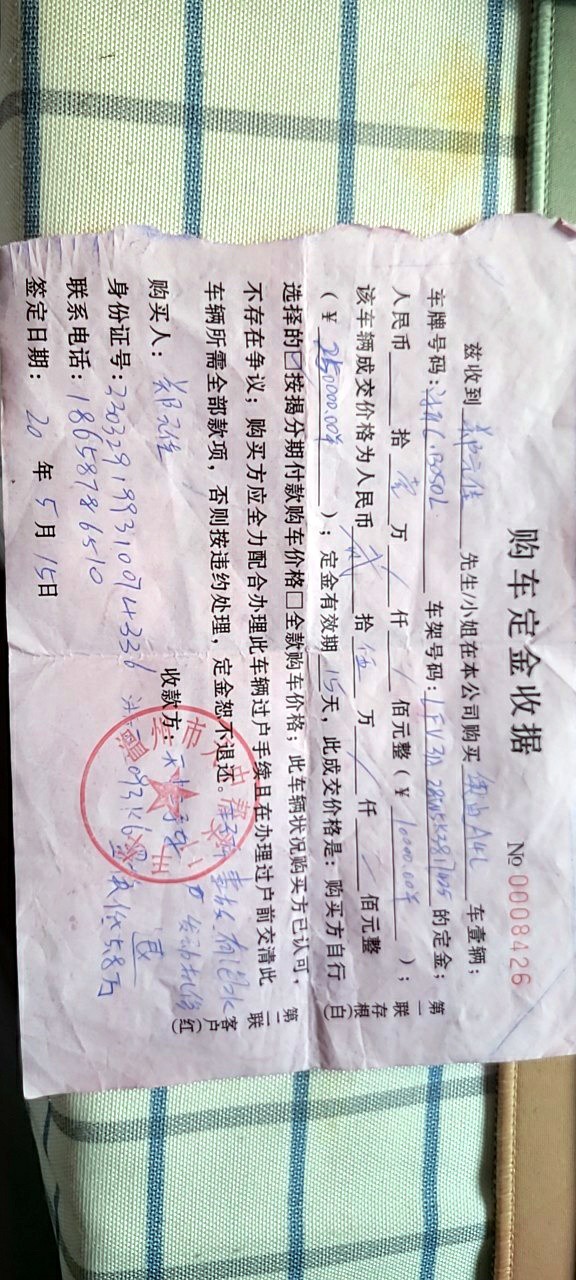 购车定金收据
№ 0008426
兹收到 郑元佳 先生/小姐在本公司购买 奥迪A4L 车壹辆;
车牌号码: 车架号码: 的定金;
人民币 拾 壹 万 / 仟 / 佰元整(¥ 10000.00元 );
该车辆成交价格为人民币 贰 拾 伍 万 / 仟 / 佰元整
(¥ 250000.00元 ); 定金有效期 15 天, 此成交价格是: 购买方自行
选择的☑按揭分期付款购车价格□全款购车价格; 此车辆状况购买方已认可,
不存在争议; 购买方应全力配合办理此车辆过户手续且在办理过户前交清此
车辆所需全部款项, 否则按违约处理, 定金恕不退还。
购买人: 郑元佳 收款方:
身份证号:
联系电话: 18658786510
签定日期: 20 年 5 月 15日
第一联 存根(白)
第二联 客户(红)